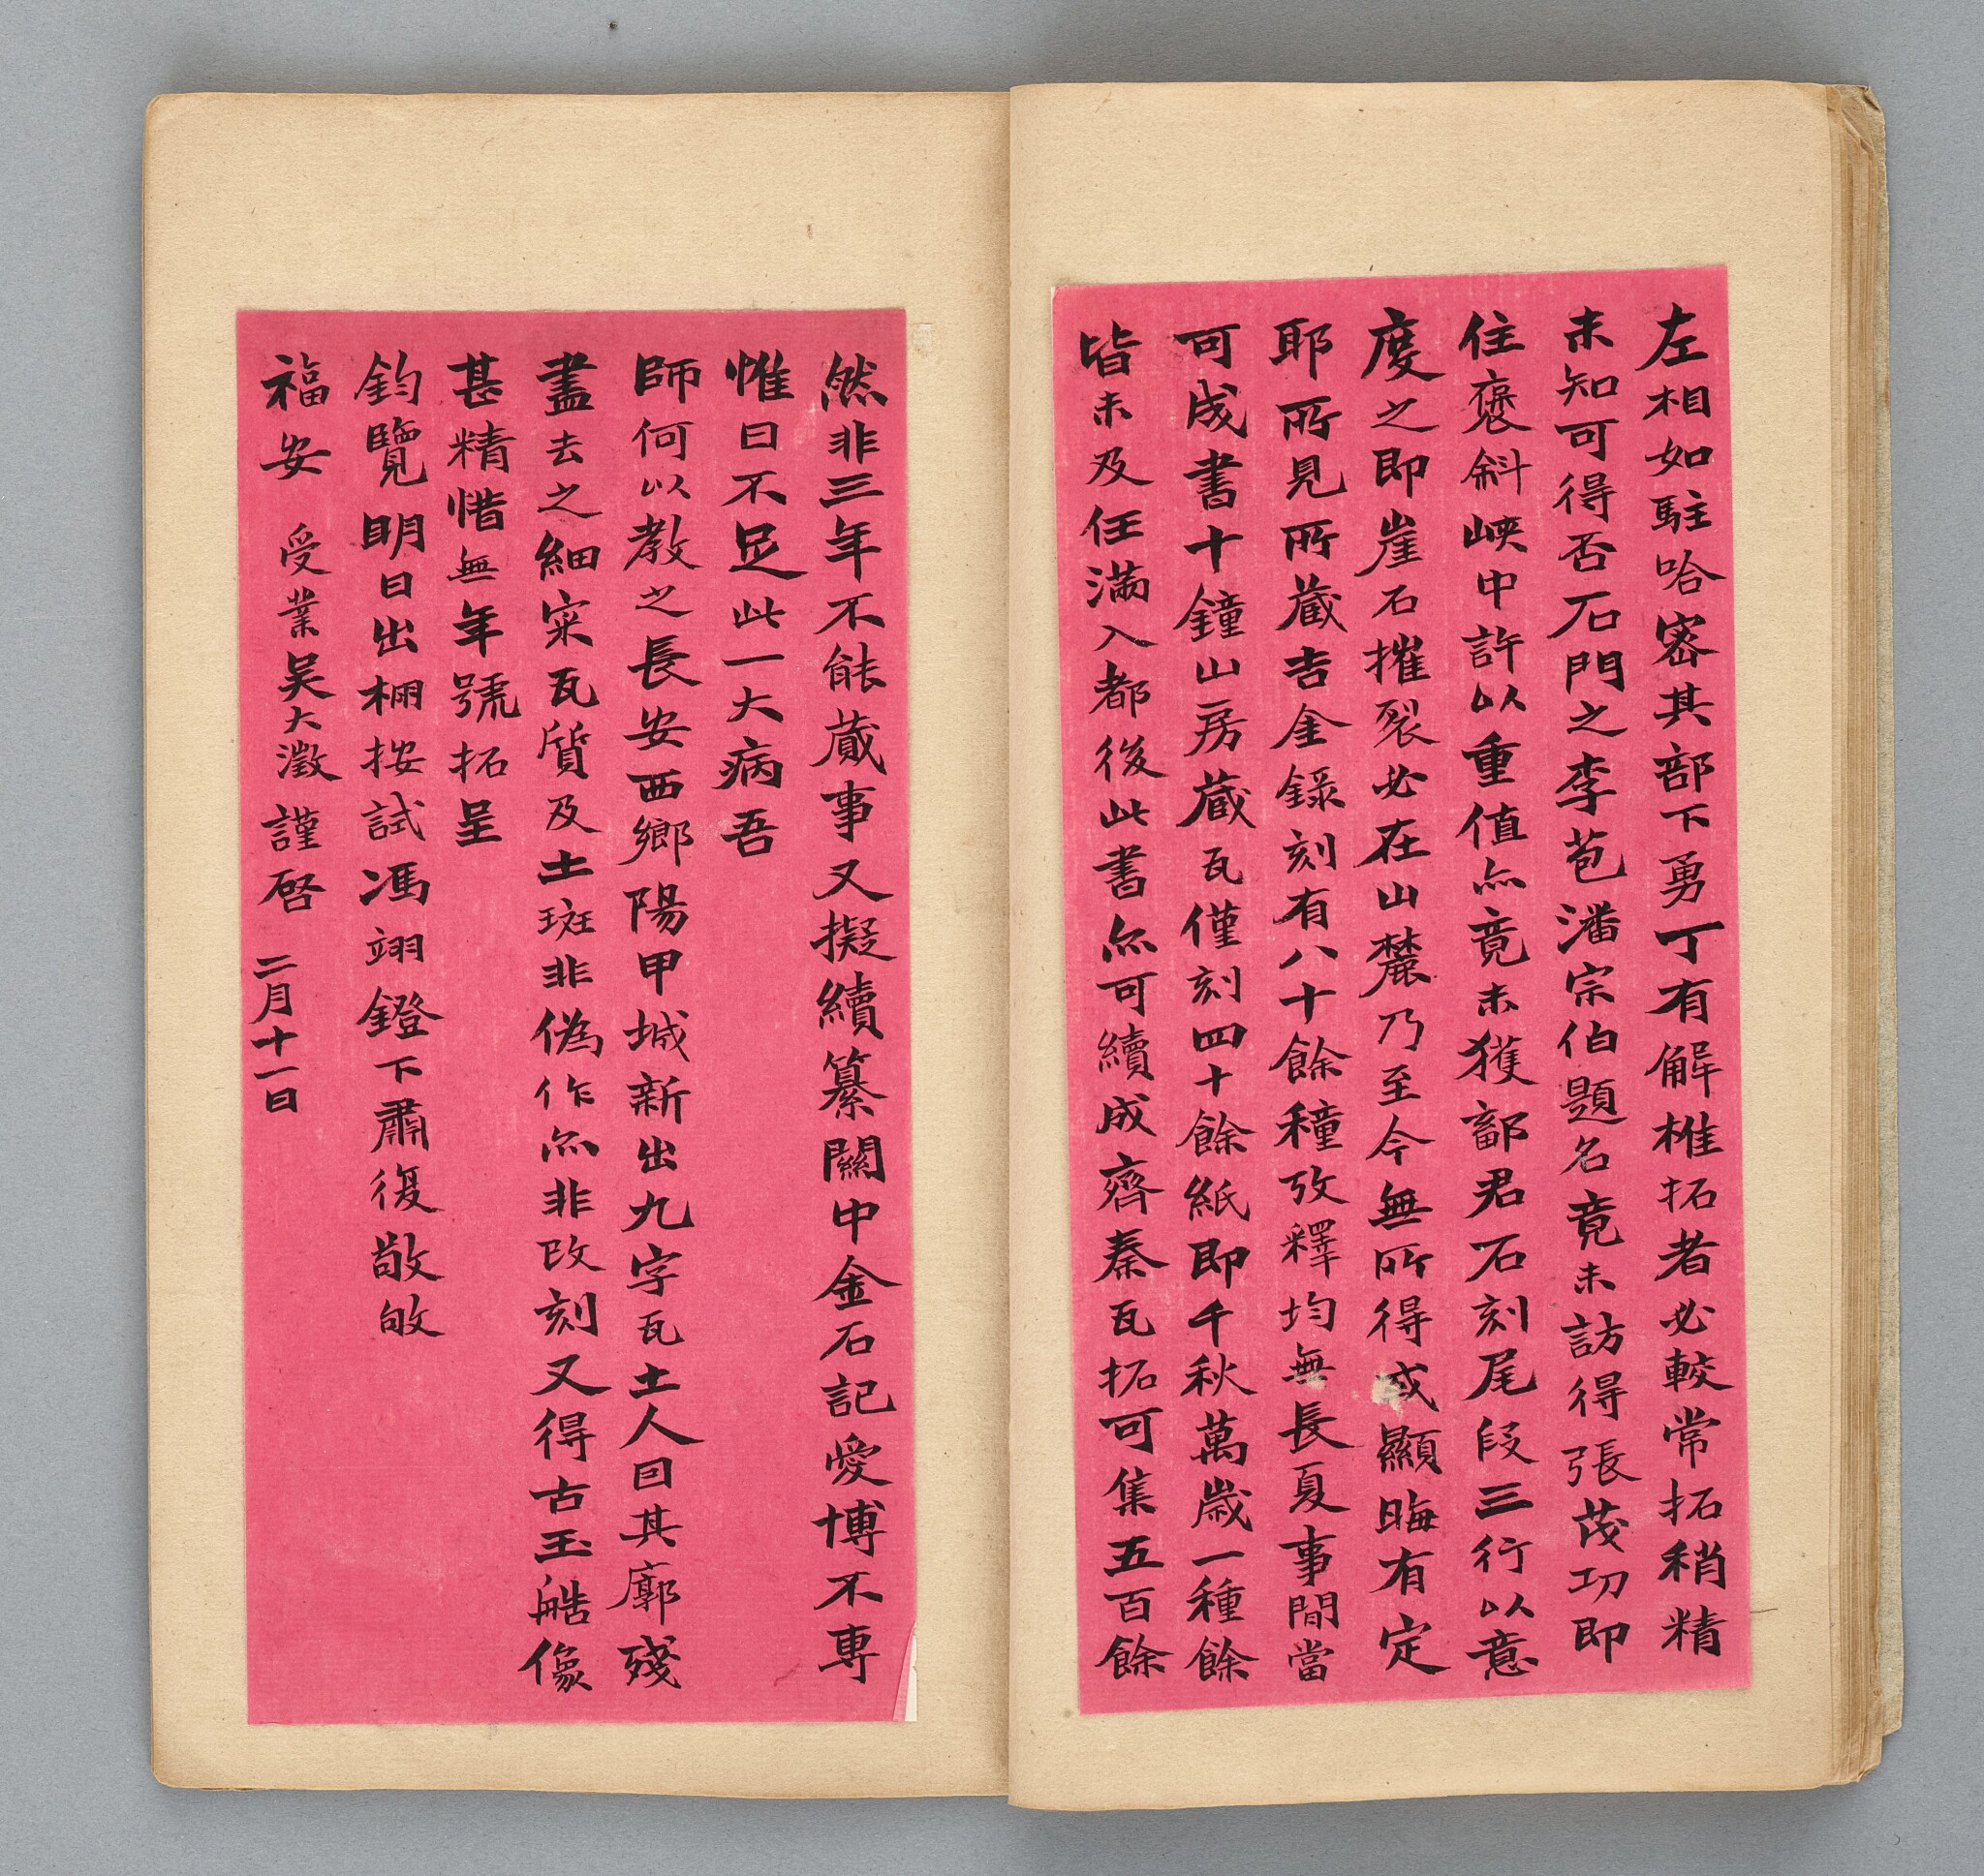 左相如駐哈宻其部下勇丁有解椎拓者必較常拓稍精
未知可得否石門之李苞潘宗伯題名竟未訪得張茂功即
住褒斜峽中許以重值亦竟未獲鄐君石刻尾段三行以意
度之即崖石摧裂必在山麓乃至今無所得或顯晦有定
耶所見所藏吉金錄刻有八十餘種攷釋均無長夏事閒當
可成書十鐘山房藏瓦僅刻四十餘紙即千秋萬歲一種餘
皆未及任滿入都後此書亦可續成齊秦瓦拓可集五百餘
然非三年不能蕆事又擬續纂關中金石記愛博不專
惟日不足此一大病吾
師何以教之長安西鄉陽甲城新出九字瓦土人曰其廓殘
盡去之細宷瓦質及土斑非偽作亦非改刻又得古玉造像
甚精惜無年號拓呈
鈞覽明日出棚按試馮翊鐙下肅復敬敂
福安 受業吳大澂謹啓 二月十一日